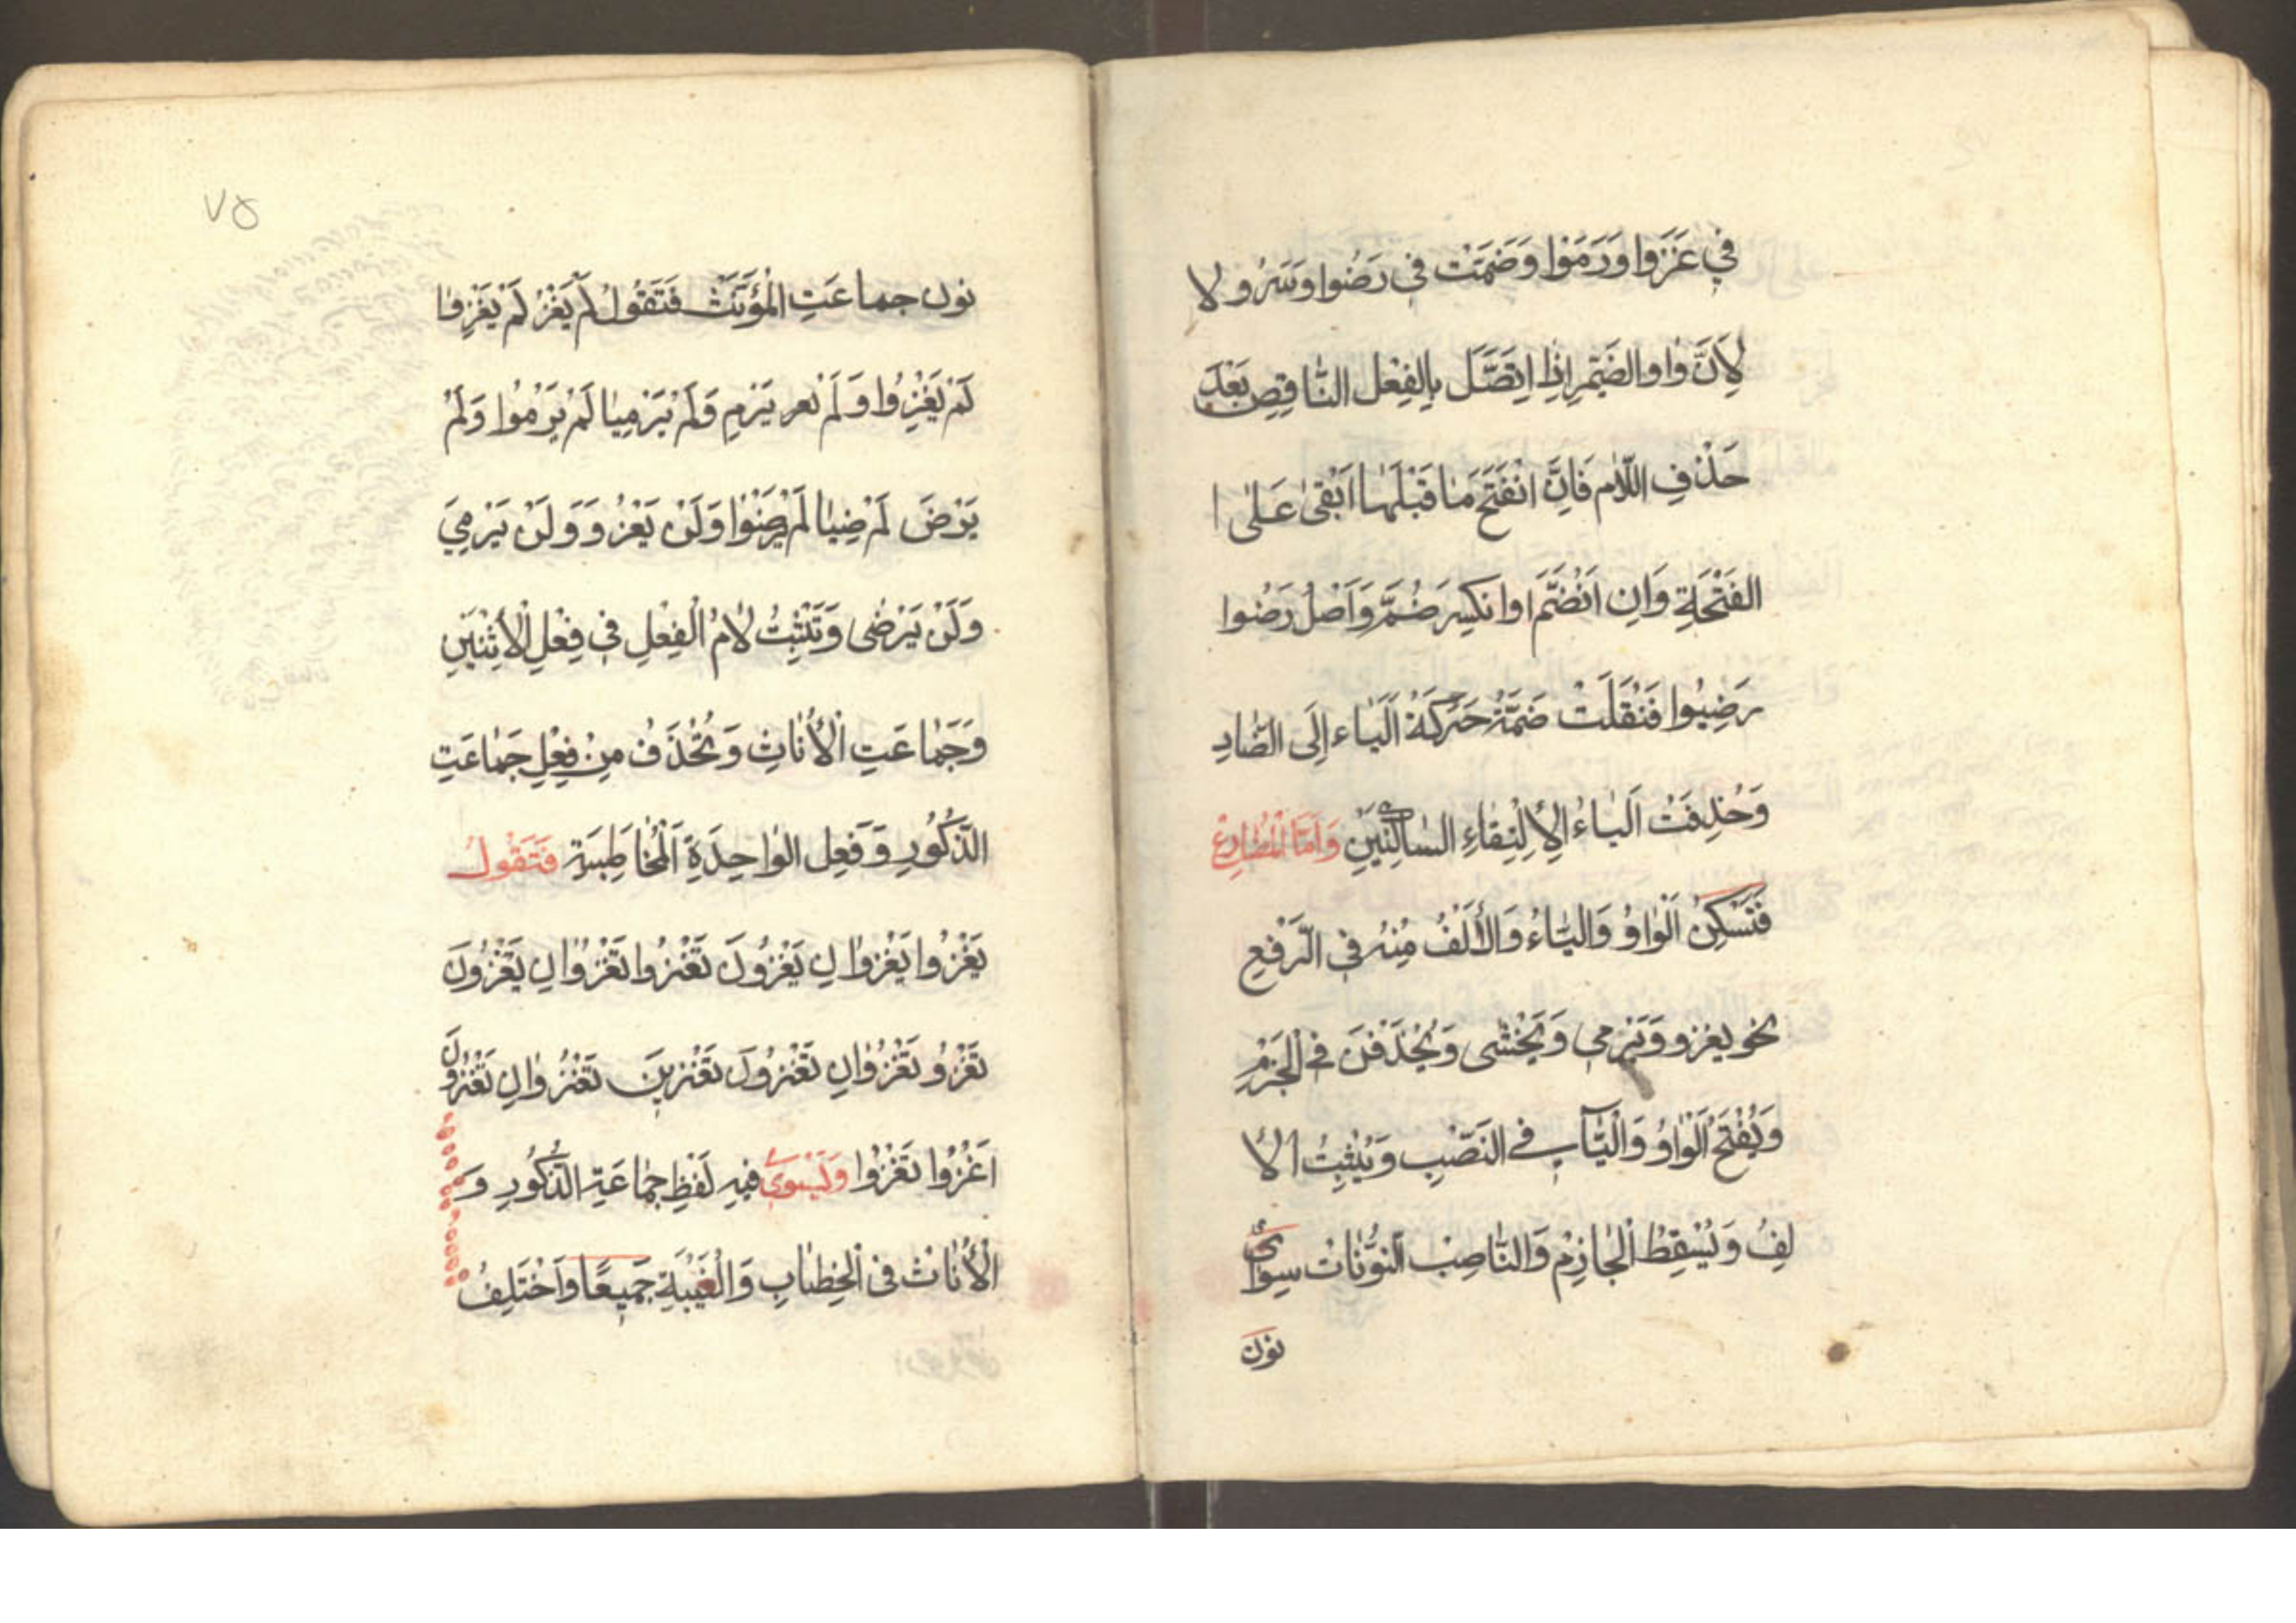 في غَزَوا وَرَمَوْا وَضَمَمْتَ في رَضُوا وَسَرُو لا
لِاَنَّ وٰاوالضَمٖيرِ اِذٰا اِتَّصَلَ بِالفِعْل النّٰاقِصِ بَعْدَ
حَذْفِ اللّٰامِ فَاِنَّ انْفَتَحَ مٰا قَبْلَهٰا اَبْقىٰ عَلٰى ا
الفَتْحَةِ وَاِن اَنْضَمَّ اوانكسِرَ ضُمَّ وَاَصْلُ رَضُوا
رَضِيُوا فَنُقِلَتْ ضَمَّةُ حَرَكَةُ اَليٰاء اِلَى الضّٰادِ
وَحُذِفَتُ اَليٰاءُ الِاِلْتِقٰاءِ السّاكِنَيْنِ وَاَمَّا المُضٰارِعُ
فَتَسْكِنُ الْوٰاوُ وَاليّٰاءُ وَالْاَلَفُ مِنْهُ في الرَّفْعِ
نحو يغزو وَيَرْمي وَيَخْشٰى وَيُحْذَفْنَ في الْجَزْمِ
وَيُفْتَحُ الْوٰاوُ وَالْيٰاءِ في النَصْبِ وَيُثْبِتُ الْا
لِفُ وَيُسْقِطُ الْجٰازِمْ وَالنّٰاصِبْ النُوّنٰات سِوٰىٔ
نون
٧٥
نون جماعَتِ المُؤَنَّث فَتَقُولُ لَمْ يَغْزُ لَمْ يَغْزِوٰا
لَمْ يَغْزُوا وَ لَمْ نعر يَرْمِ وَلَمْ يَرْمِيٰا لَمْ يَرْمُوا وَلَمْ
يَرْضَ لَمْ ضِيٰا لَمْ يَرْضَوْا وَلَنْ يَغْزُوَ وَلَنْ يَرْمِيَ
وَلَنْ يَرْضٰى وَتَثْبِتُ لٰامُ الْفِعْلِ في فِعْلِ الْاِثْنَيْنِ
وَجَمٰاعَتِ الْاُنٰاثِ وَتُحْذَفُ مِنْ فِعْلِ جَمٰاعَتِ
الذّكُورِ وَ وَفعِل الوٰاحِدَةِ اَلْمُخٰاطِبَة فَتَقُولُ
يَغْزُوا يَغْزوٰانِ يَغْزُونَ تَغْزُوا تَغْزُوٰانِ يَغْزُونَ
تَغْزُو تَغْزُوٰانِ تَغْزُونَ تَغْزبنَ تَغْزُوٰانِ تَغْزُونَ
اَغْزُوا نَغْزُوا وَلَيَسْوي فيهِ لَفْظِ جمٰاعَةِ الذُّكُورِ وَ
الْاُنٰاث في الْخِطٰابِ وَالْغَيْبَةِ جَميعًا وَاَخْتَلِفُ